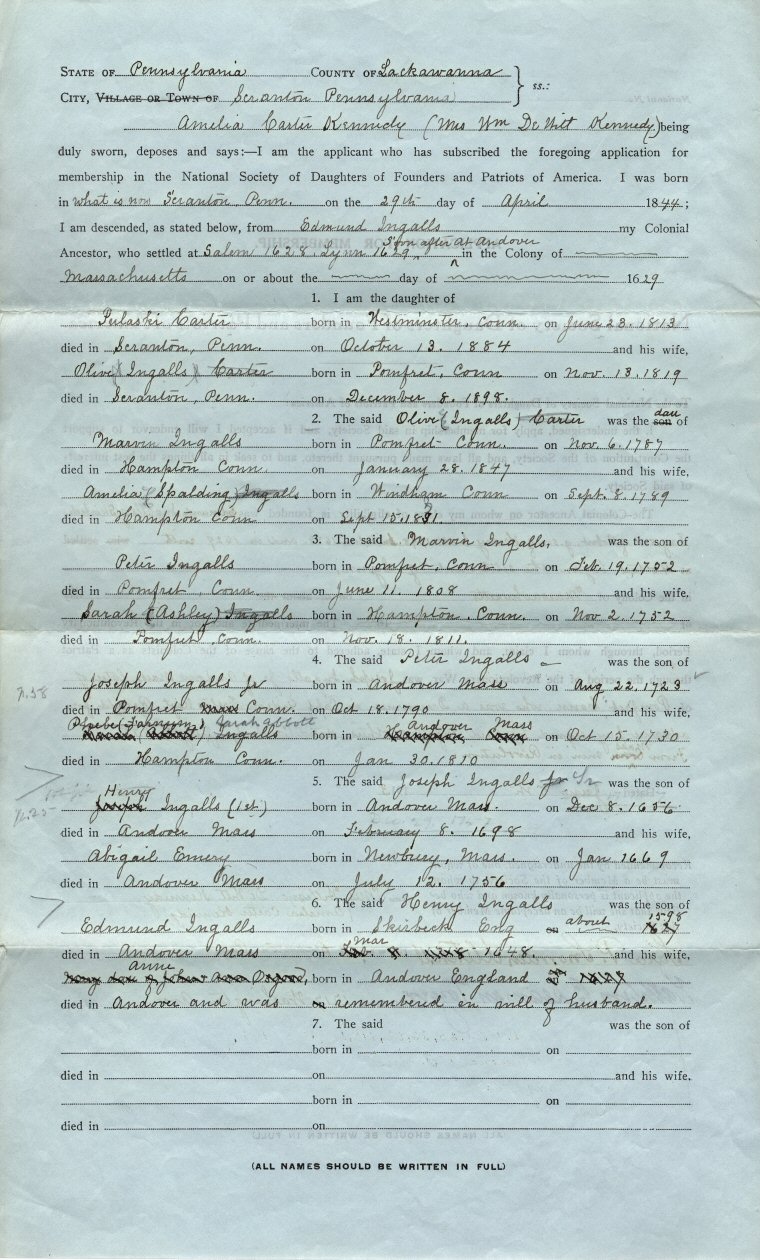 STATE OF Pennsylvania COUNTY OF Lackawanna
CITY, VILLAGE OR TOWN OF Scranton Pennsylvania } ss.:
Amelia Carter Kennedy (Mrs Wm DeWitt Kennedy) being
duly sworn, deposes and says:—I am the applicant who has subscribed the foregoing application for
membership in the National Society of Daughters of Founders and Patriots of America. I was born
in what is now Scranton, Penn. on the 29th day of April 1844;
I am descended, as stated below, from Edmund Ingalls my Colonial
Ancestor, who settled at Salem 1628. Lynn 1629, soon after at Andover in the Colony of
Massachusetts on or about the day of 1629
1. I am the daughter of
Pulaski Carter born in Westminster, Conn. on June 23. 1813
died in Scranton, Penn. on October 13. 1884 and his wife,
Olive (Ingalls) Carter born in Pomfret, Conn on Nov. 13. 1819
died in Scranton, Penn. on December 8. 1898.
2. The said Olive (Ingalls) Carter was the son dau of
Marvin Ingalls born in Pomfret Conn. on Nov. 6. 1787
died in Hampton Conn. on January 28. 1847 and his wife,
Amelia (Spalding) Ingalls born in Windham Conn on Sept. 8. 1789
died in Hampton Conn on Sept 15.
3. The said Marvin Ingalls, was the son of
Peter Ingalls born in Pomfret, Conn on Feb. 19. 1752
died in Pomfret, Conn on June 11. 1808 and his wife,
Sarah (Ashley) Ingalls born in Hampton, Conn. on Nov 2. 1752
died in Pomfret Conn. on Nov. 18. 1811.
4. The said Peter Ingalls was the son of
Joseph Ingalls Jr born in Andover Mass on Aug 22. 1723
p. 58
died in Pomfret Conn. on Oct 18. 1790 and his wife,
Phoebe (Farnum) Sarah Abbott Ingalls born in Hampton Conn Andover Mass on Oct 15. 1730
died in Hampton Conn. on Jan 30. 1810
5. The said Joseph Ingalls Jr Sr was the son of
Henry Ingalls (1st) born in Andover Mass. on Dec 8. 1656
died in Andover Mass on February 8. 1698 and his wife,
Abigail Emery born in Newbury, Mass. on Jan 1669
died in Andover Mass on July 12. 1756
6. The said Henry Ingalls was the son of
Edmund Ingalls born in Skirbeck Eng on about 1598
died in Andover Mass on Mar 1648. and his wife,
Anne born in Andover England
died in Andover and was remembered in will of husband.
7. The said was the son of
born in on
died in on and his wife,
born in on
died in on
(ALL NAMES SHOULD BE WRITTEN IN FULL)